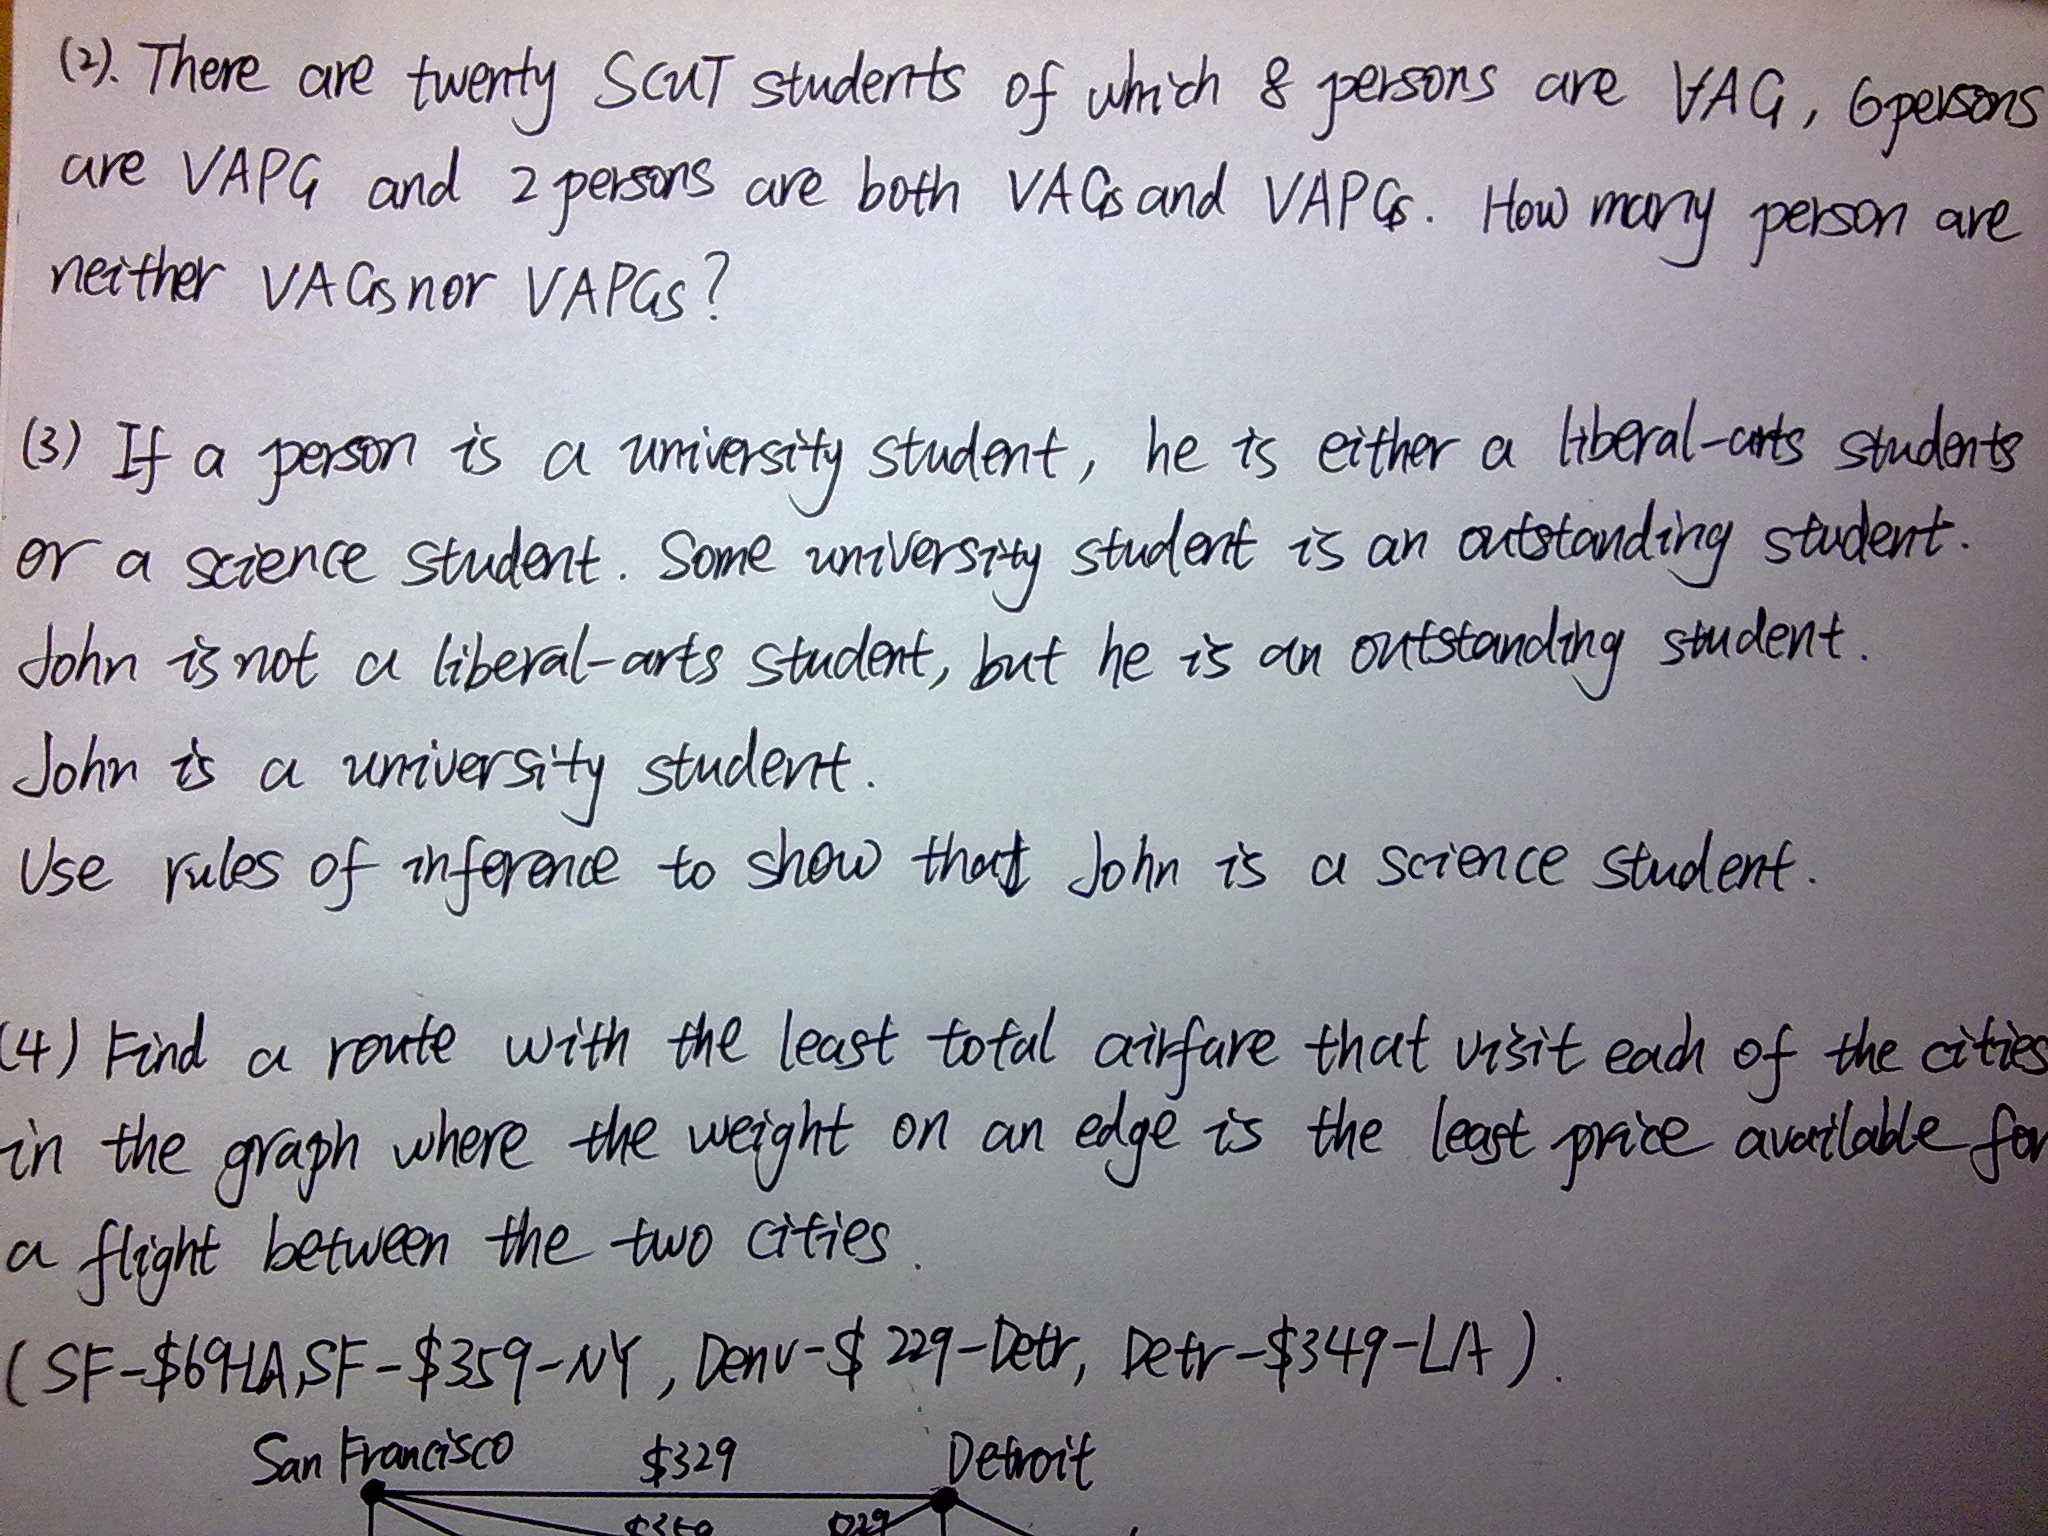 (2). There are twenty SCUT students of which 8 persons are VAG, 6 persons
are VAPG and 2 persons are both VAGs and VAPGs. How many person are
neither VAGs nor VAPGs?
(3) If a person is a university student, he is either a liberal-arts students
or a science student. Some university student is an outstanding student.
John is not a liberal-arts student, but he is an outstanding student.
John is a university student.
Use rules of inference to show that John is a science student.
(4) Find a route with the least total airfare that visit each of the cities
in the graph where the weight on an edge is the least price available for
a flight between the two cities.
(SF-$69-LA, SF-$359-NY, Denv-$229-Detr, Detr-$349-LA).
San Francisco $329 Detroit